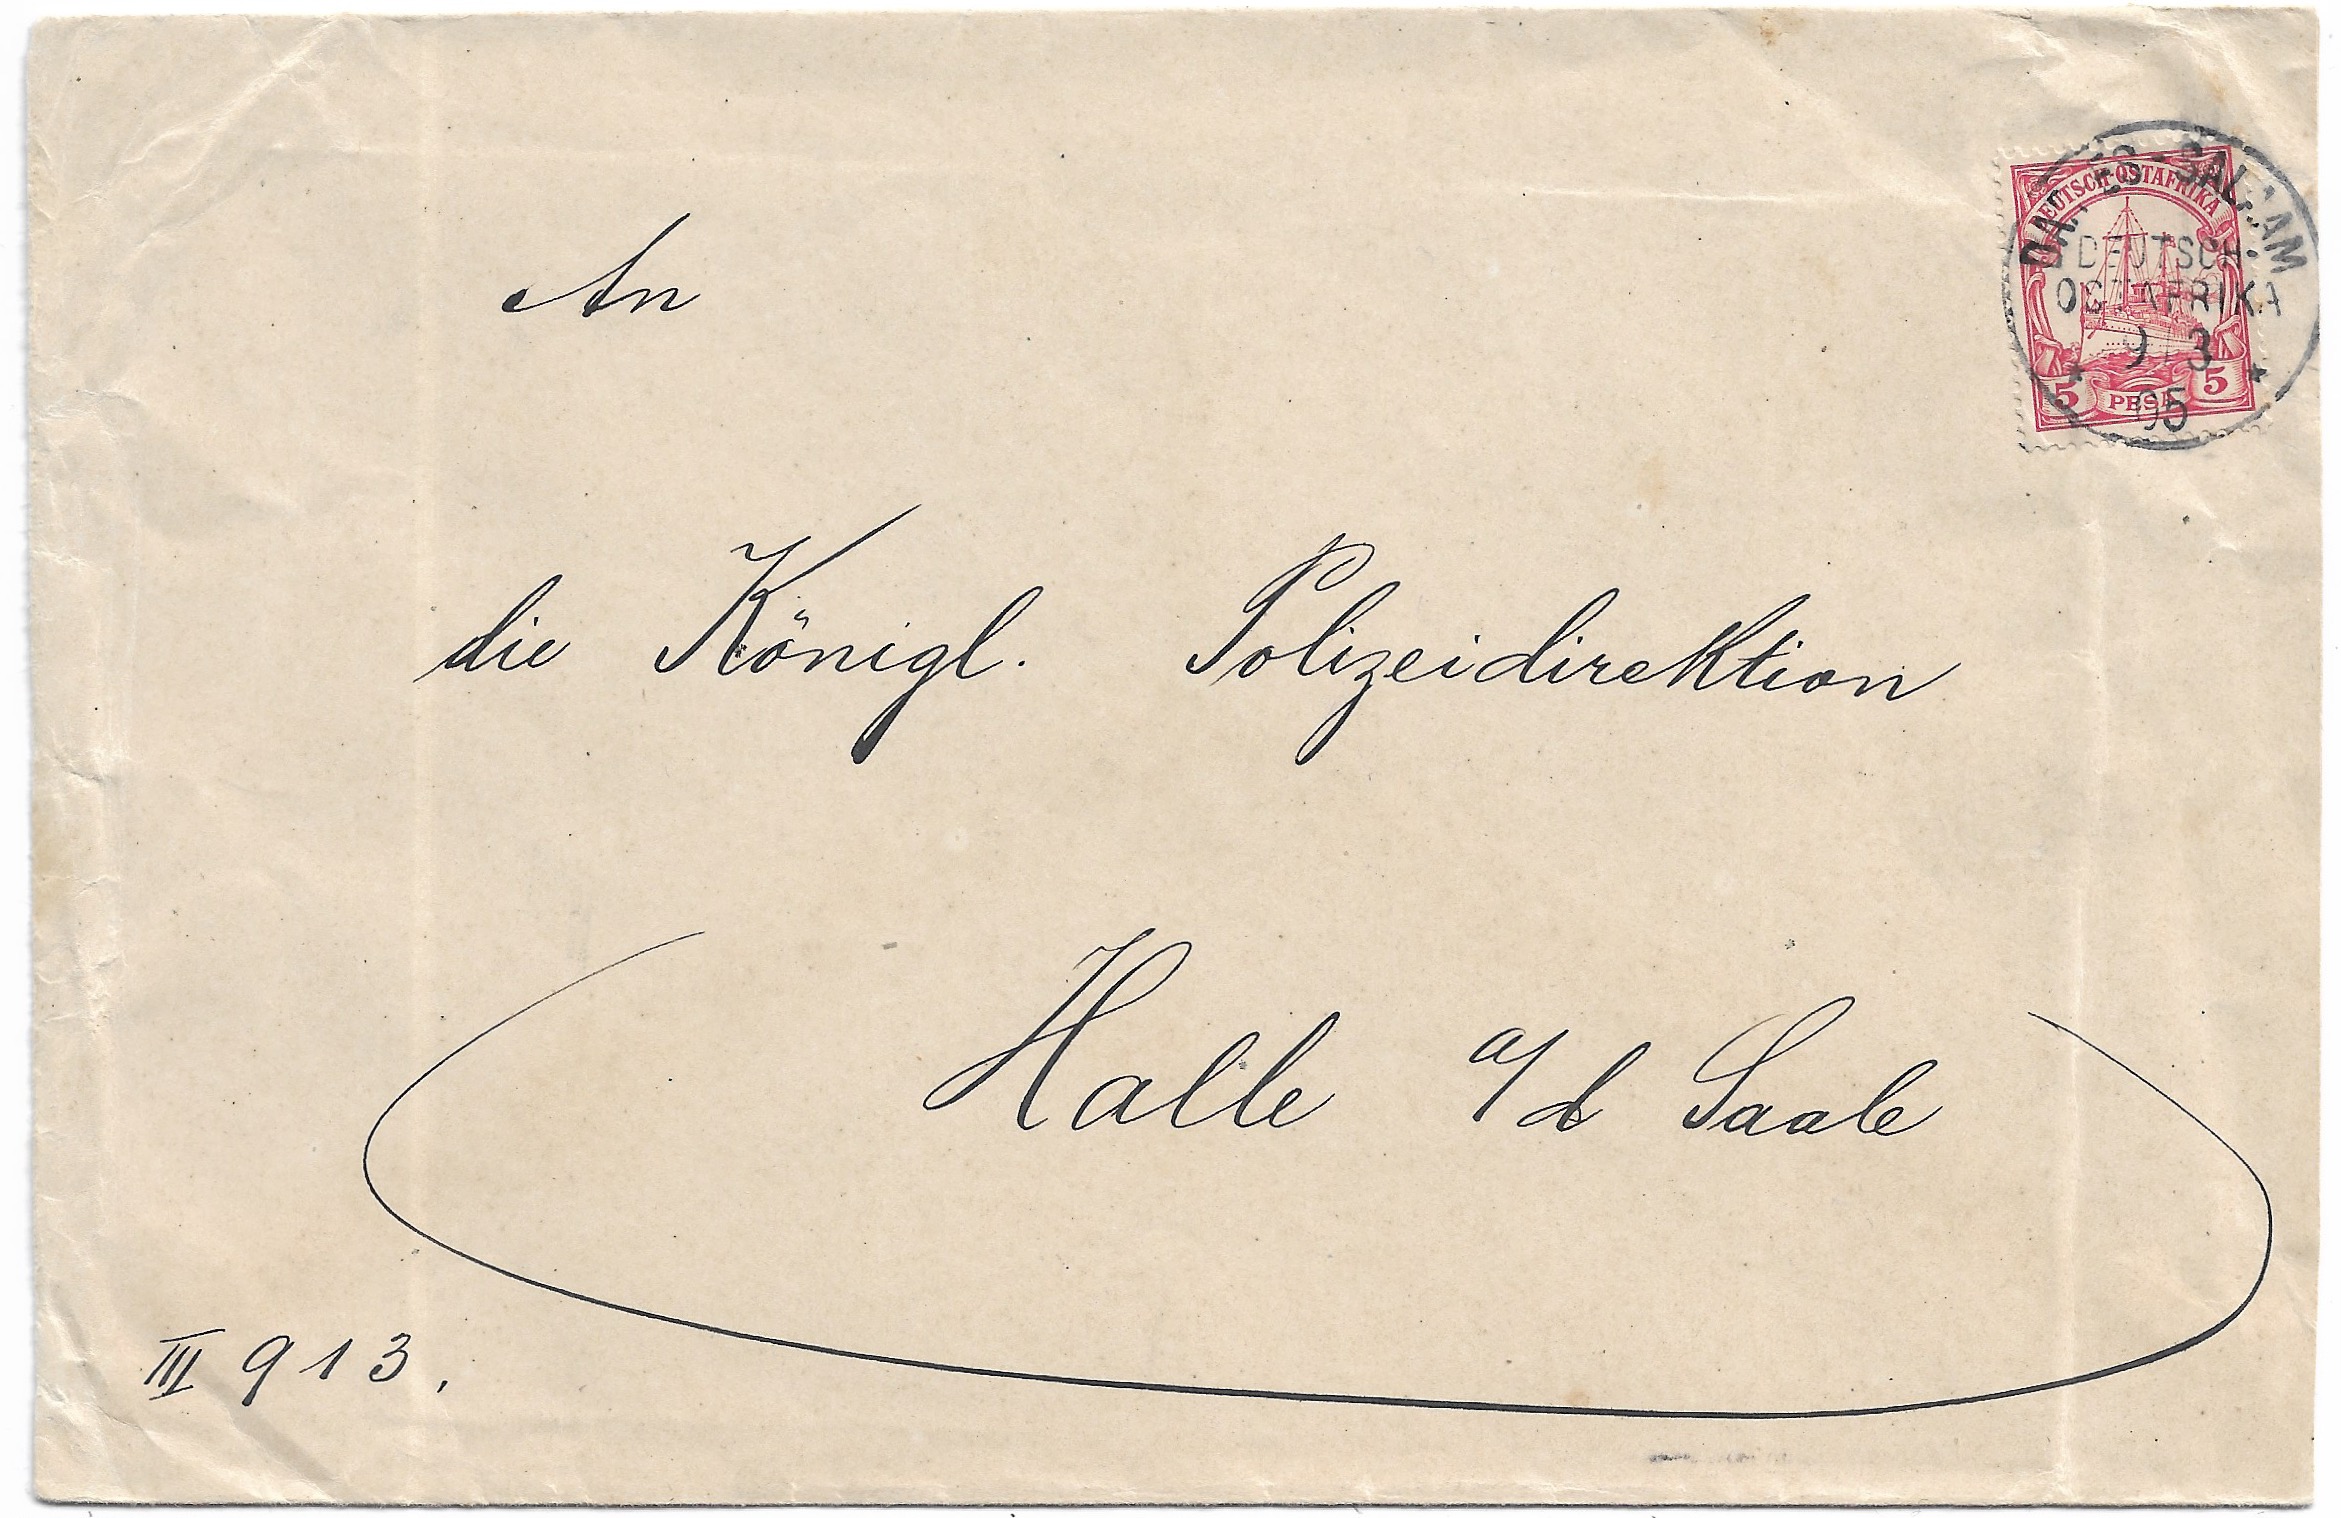 An
die Königl. Polizeidirektion
Halle a/d Saale
III 913.
DEUTSCH-OSTAFRIKA
5 PESA 5
DAR-ES-SALAAM
DEUTSCH-
OSTAFRIKA
9 3
05